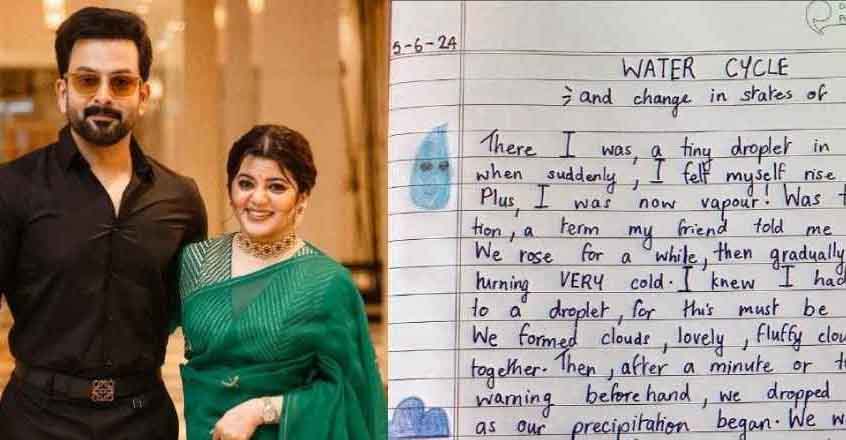 5-6-24
WATER CYCLE
and change in states of
There I was, a tiny droplet in
when suddenly, I felt myself rise
Plus, I was now vapour! Was
tion, a term my friend told me
We rose for a while, then gradually
turning VERY cold. I knew I had
to a droplet, for this must be
We formed clouds, lovely, fluffy
together. Then, after a minute or
warning beforehand, we dropped
as our precipitation began. We